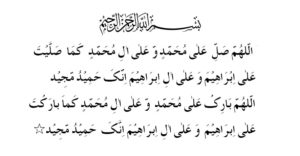 بسم الله الرحمن الرحيم
اللهم صل على محمد و على ال محمد كما صليت
على ابراهيم و على ال ابراهيم انک حميد مجيد
اللهم بارک على محمد و على ال محمد كما بارکت
على ابراهيم و على ال ابراهيم انک حميد مجيد☆